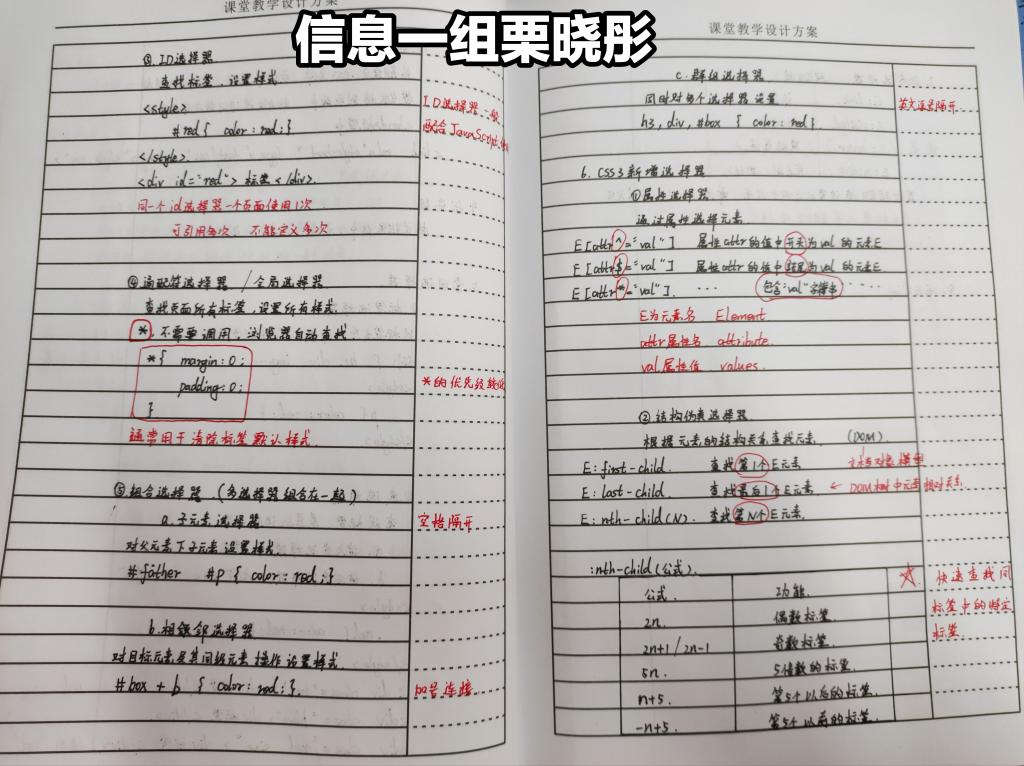 信息一组栗晓彤
课堂教学设计方案
③ ID选择器
查找标签,设置样式
<style>
#red{ color:red;}
</style>
<div id="red"> 标签 </div>.
同一个id选择器一个页面使用1次
可引用多次 不能定义多次
ID选择器一般
配合JavaScript使用
④ 通配符选择器 / 全局选择器
查找页面所有标签,设置所有样式.
*. 不需要调用,浏览器自动查找.
*{ margin:0;
padding:0;
}
通常用于清除标签默认样式.
*的优先级较低
⑤ 组合选择器 (多选择器组合在一起)
a.子元素选择器
空格隔开
对父元素下子元素设置样式.
#father #p { color:red;}
b.相邻选择器
对目标元素及其同级元素操作设置样式.
#box + b { color:red;}.
加号连接.
课堂教学设计方案
c.群组选择器
同时对多个选择器设置
英文逗号隔开
h3, div, #box { color:red}
6. CSS3新增选择器
①属性选择器
通过属性选择元素
E[attr^="val"] 属性attr的值中开头为val的元素E
E[attr$="val"] 属性attr的值中结尾为val的元素E
E[attr*="val"]. ... 包含"val"字符串
E为元素名 Element
attr属性名 attribute.
val属性值 values.
②结构伪类选择器
根据元素的结构关系查找元素. (DOM).
E:first-child. 查找第1个E元素 文档对象模型
E:last-child. 查找最后1个E元素 ← DOM树中元素相对关系.
E:nth-child(N). 查找第N个E元素.
:nth-child(公式).
公式. 功能. ☆ 快速查找同
2n. 偶数标签. 标签中的特定
2n+1 / 2n-1 奇数标签. 标签.
5n. 5倍数的标签.
n+5. 第5个以后的标签.
-n+5. 第5个以前的标签.